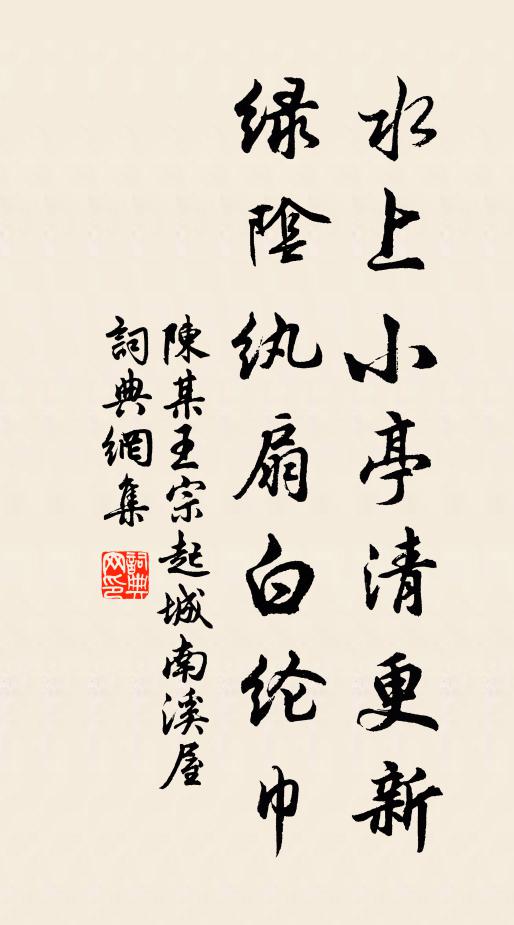 水上小亭清更新
绿陰纨扇白纶巾
陳某王宗起城南溪屋
詞典網集
詞典网印